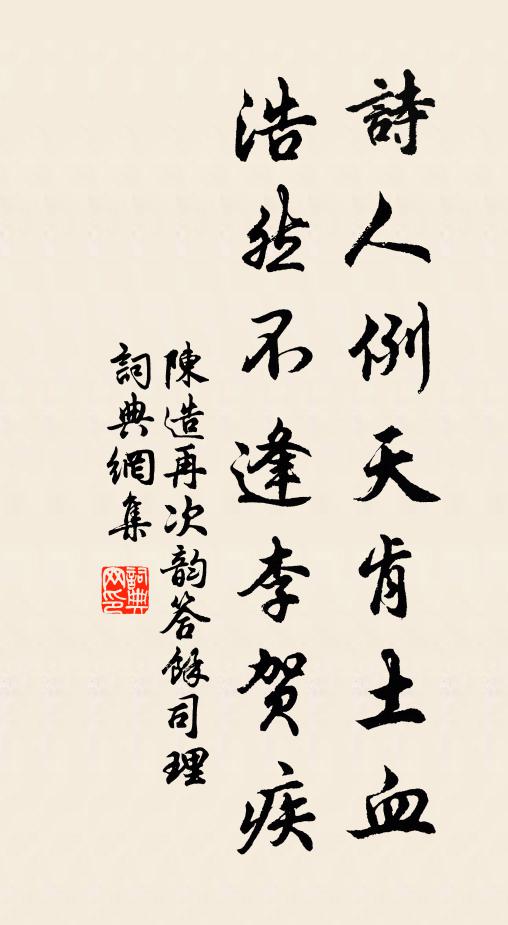 詩人例天肯土血
浩然不逢李賀疾
陳造再次韵答餘司理
詞典網集
詞典
网印